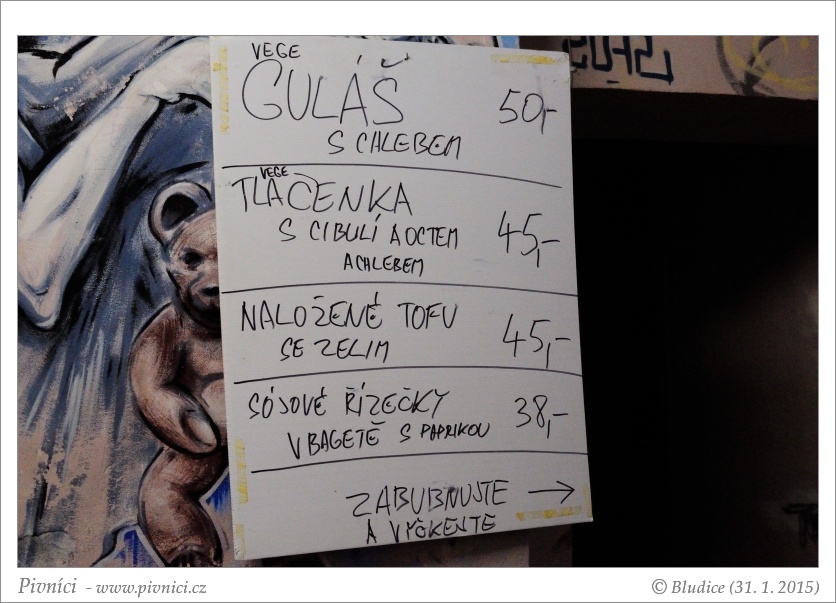 VEGE
GULÁŠ 50,-
S CHLEBEM
VEGE
TLAČENKA
S CIBULÍ A OCTEM 45,-
A CHLEBEM
NALOŽENÉ TOFU 45,-
SE ZELIM
SÓJOVÉ ŘÍZEČKY 38,-
V BAGETĚ S PAPRIKOU
ZABUBNUJTE →
A VYČKEJTE
Pivníci - www.pivnici.cz
© Bludice (31. 1. 2015)